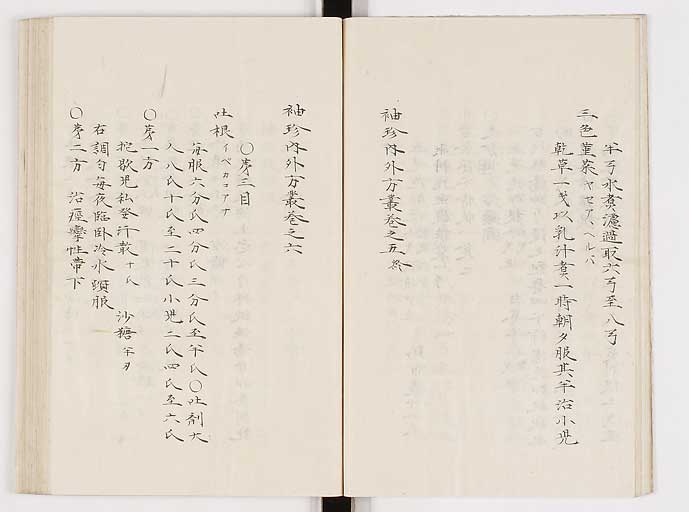 半弓水煮濾過取六弓至八弓
三色菫菜 ヤセア、ヘルバ
乾草一戔以乳汁煮一時朝夕服其半治小児
袖珍内外方叢巻之五 終
袖珍内外方叢巻之六
〇第三目
吐根 イペカコアナ
毎服六分氏四分氏三分氏至半氏〇吐剤大
人八氏十氏至二十氏小児二氏四氏至六氏
〇第一方
挖歇児私発汗散 十氏 沙糖 半刃
右調匀毎夜臨臥冷水
服
〇第二方 治痙攣性帯下